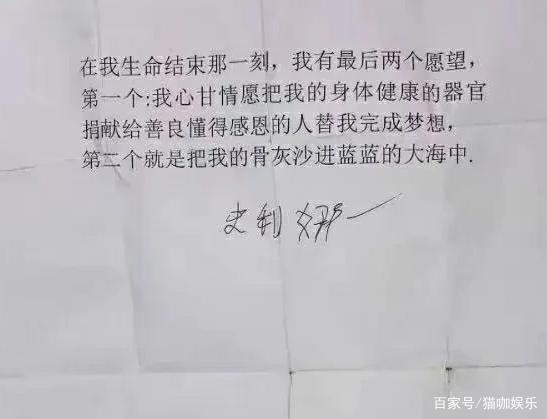 在我生命结束那一刻，我有最后两个愿望，
第一个:我心甘情愿把我的身体健康的器官
捐献给善良懂得感恩的人替我完成梦想，
第二个就是把我的骨灰沙进蓝蓝的大海中.
史利娜
百家号/猫咖娱乐